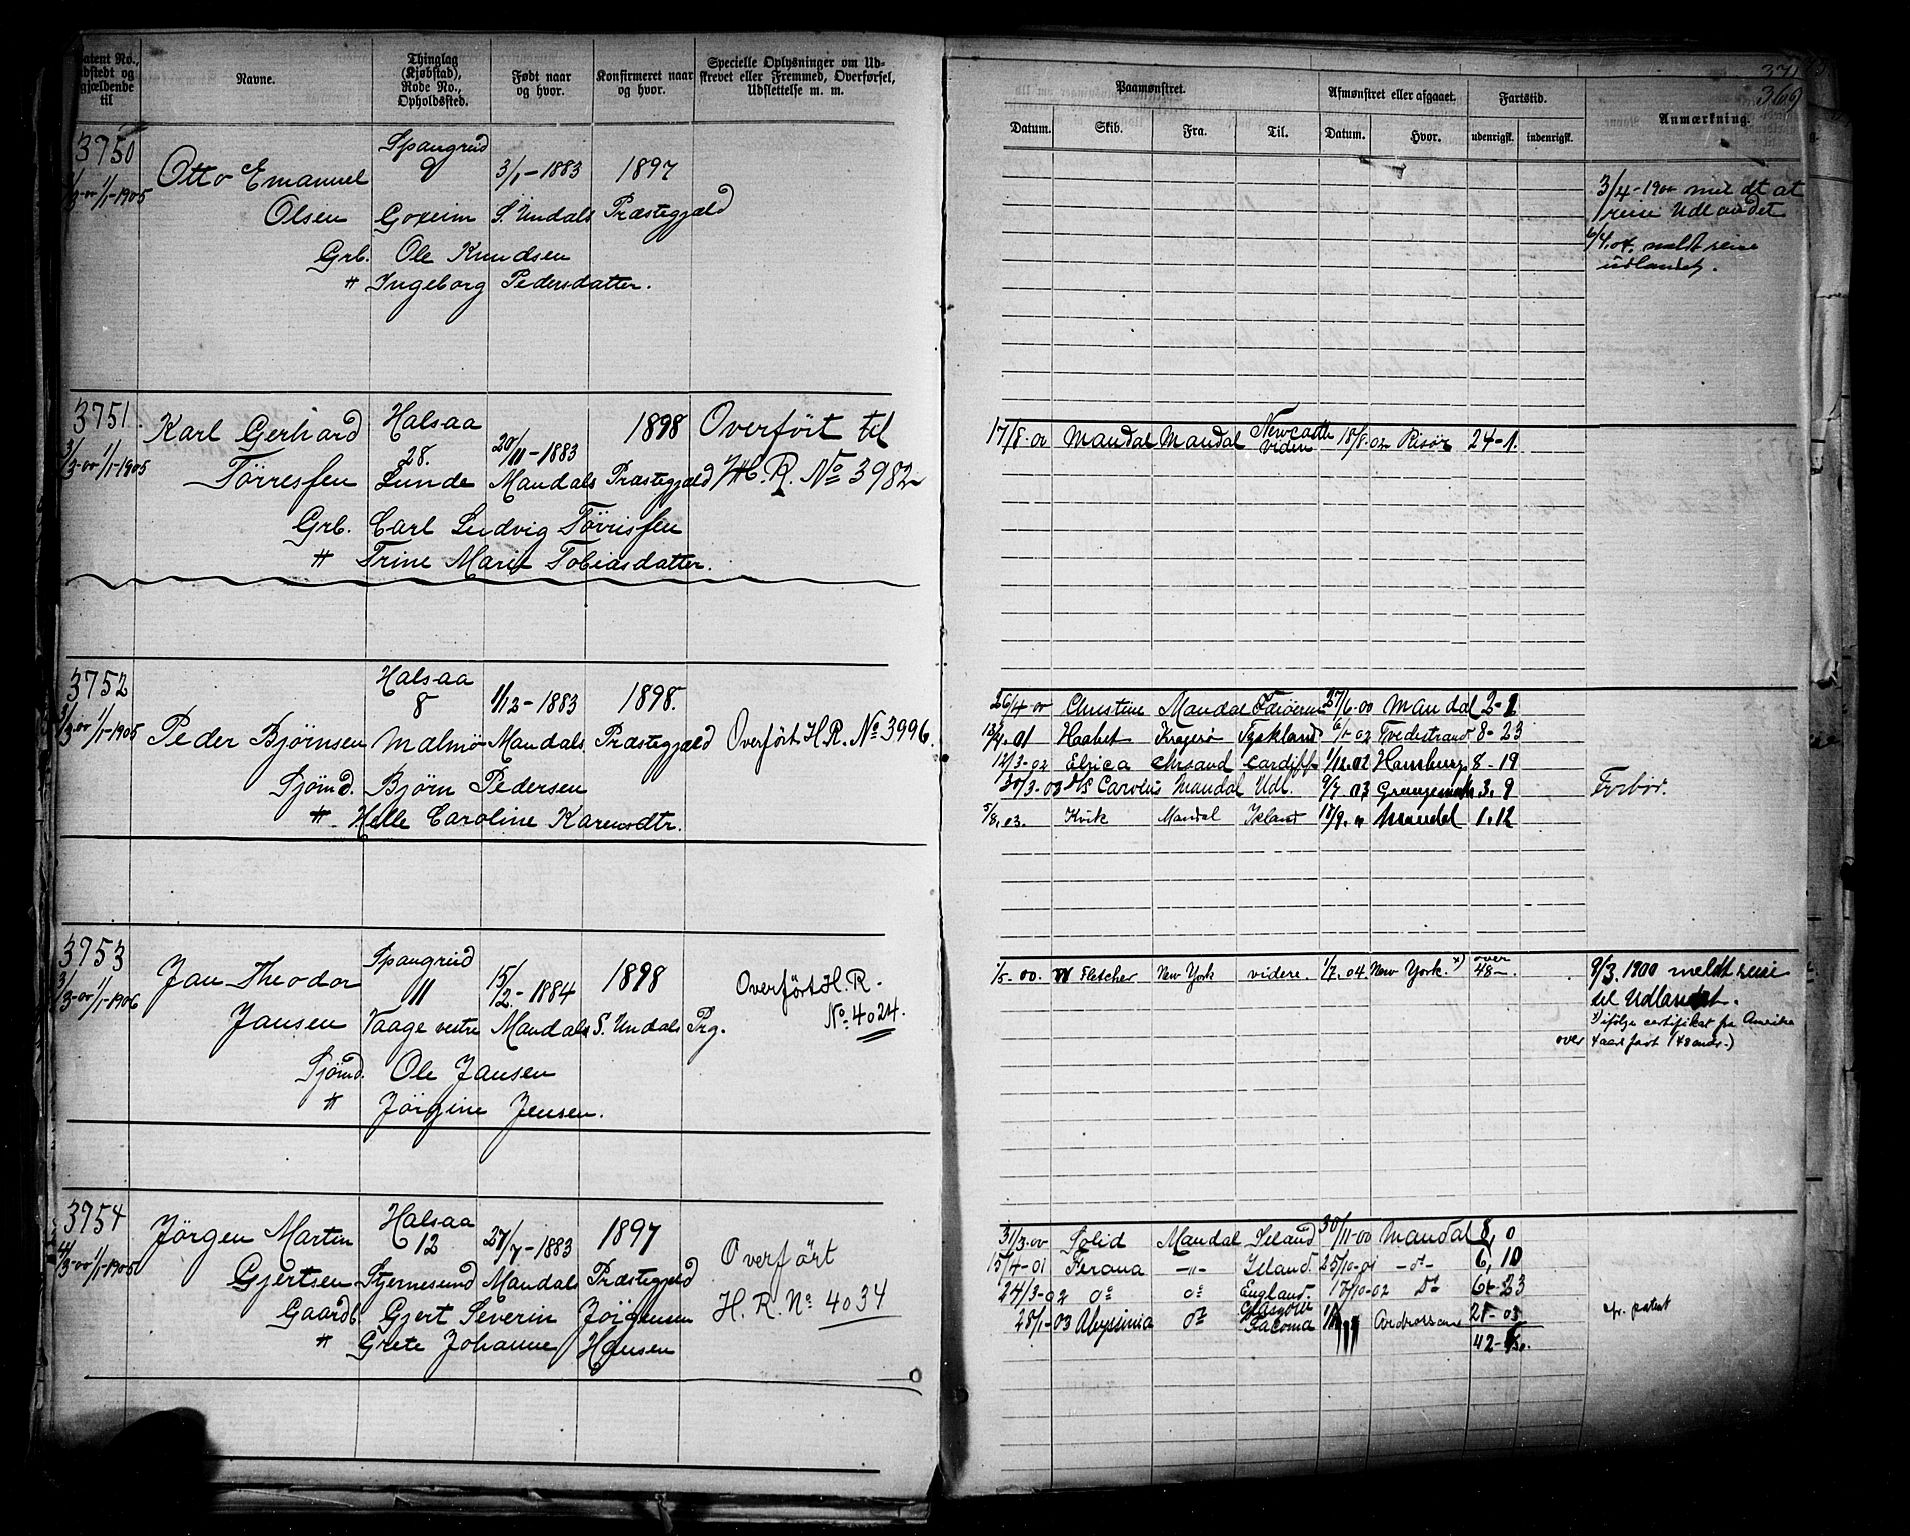 Patent No., udstedt og gjældende til
Navne.
Thinglag (Kjøbstad), Rode No., Opholdssted.
Født naar og hvor.
Konfirmeret naar og hvor.
Specielle Oplysninger om Udskrevet eller Fremmed, Overførsel, Udslettelse m. m.
3750 Spangreid
9 3/1-1883 1897
3-00 1/1-1905 Otto Emanuel
Olsen S. Undals Præstegjæld
Grb. Ole Knudsen
" Ingeborg Pedersdatter.
3751. Karl Gerhard Halsaa 1898 Overført til
3/3-00 1/1-1905 28. 20/11-1883
Tørresen Lunde Mandals Præstegjæld H. R. No 3982
Grb. Carl Ludvig Tørrisen
" Trine Marie Tobiasdatter.
3752 Halsaa
8 1/12-1883 1898.
3/3-00 1/1-1905 Peder Bjørnsen Malmø Mandals Præstegjæld Overført H. R. No 3996.
Sjømd. Bjørn Pedersen
" Helle Caroline Karensdtr.
3753 Jan Theodor Spangreid
3/3-00 1/1-1906 11 15/2-1884 1898 Overført H. R.
Jansen Vaage vestre Mandals S. Undals Prg. No 4024.
Sjømd. Ole Jansen
" Jørgine Jensen.
3754 Jørgen Martin Halsaa
1/1-1905 12 27/7-1883 1897 Overført
Gjertsen Stjernesund Mandals Præstegjæld
Gaardb. Gjert Severin Jørgensen H. R. No 4034
" Grete Johanne Hansen
369
Paamønstret.
Afmønstret eller afgaaet.
Fartstid.
Anmærkning.
Datum. Skib. Fra. Til. Datum. Hvor. udenrigsk. indenrigsk.
3/4-1900 meldt at
reise Udlandet
6/4.04. meldt reise
udlandet.
17/8-01 Mandal Mandal Newcastle videre 18/8-02 Risør 24-1.
26/4-00 Christine Mandal 27/6-00 Mandal 2-1
01 Haabet Kragerø Tyskland 6/1-02 Tvedestrand 8-23
12/3-02 Elrica Chrsand Cardiff 1/12.02 Hamburg 8-19
30/3-03 Mandal Udl. 9/7 03 3.9
5/8.03. Kvik Mandal Island Mandal 1.12
1/5-00. Fletcher New York videre. 1/7-04 New York. x) over 48-
9/3. 1900 meldt reise
til Udlandet.
x) ifølge certifikat fra Amerika
over 4 aars fart (48 mdr.)
31/3-00 Solid Mandal Island 30/11-00 Mandal 8,0
15/4-01 Ferona -"- Island 25/10-01 -do- 6,10
24/3-02 do do England. 17/10-02 Do 6-23
28/1-03 Abyssinia do Glasgow Tacoma Ardrossan 21-03
42-6